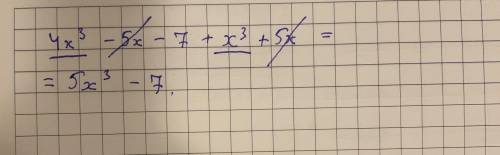 4x³ - 5x - 7 + x³ + 5x =
= 5x³ - 7.